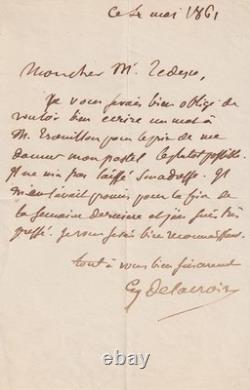 Ce 2 mai 1861
Mon cher Mr. Tedesco,
Je vous serais bien obligé de
vouloir bien ecrire un mot à
M. pour le prier de me
donner mon pastel le plutot possible.
Il ne m'a pas laissé son adresse. Il
m'en avait promis pour la fin de
la semaine derniere et j'en suis très
pressé. Je vous serai bien reconnaissant.
tout à vous bien sincèrement
Eug Delacroix
ebay